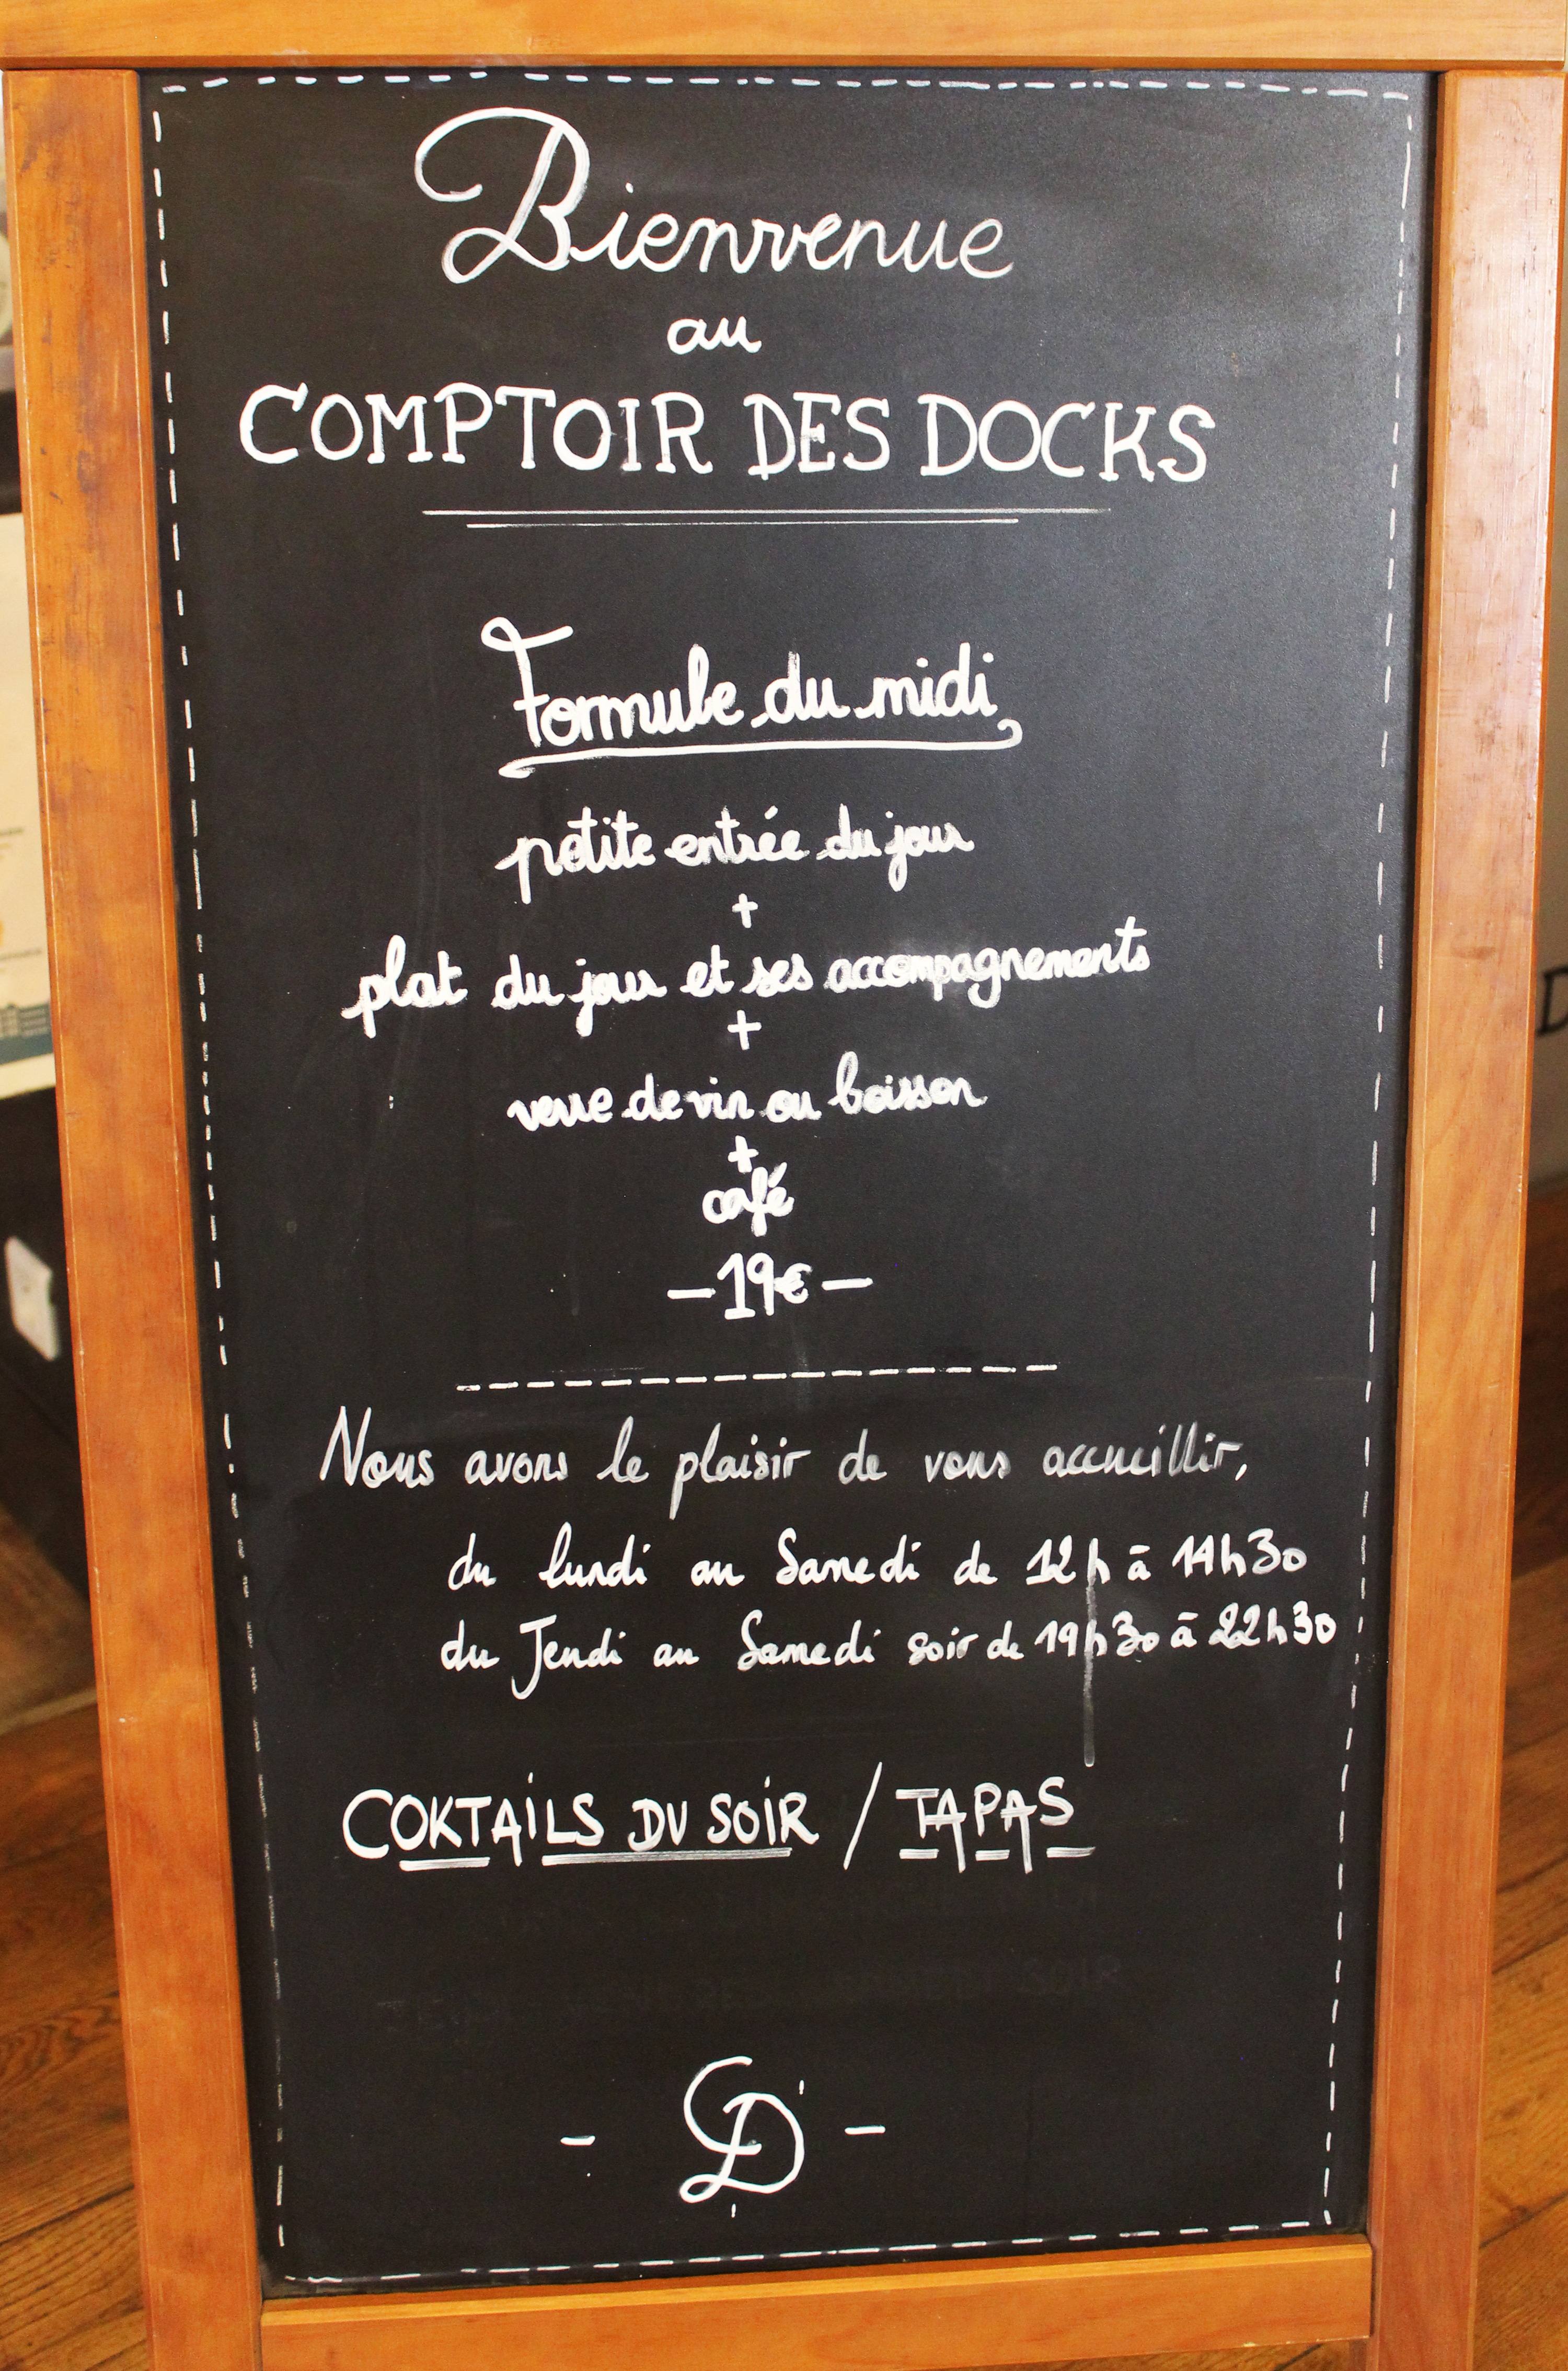 Bienvenue
au
COMPTOIR DES DOCKS
Formule du midi
petite entrée du jour
+
plat du jour et ses accompagnements
+
verre de vin ou boisson
+
café
-19€-
Nous avons le plaisir de vous accueillir,
du lundi au Samedi de 12h à 14h30
du Jeudi au Samedi soir de 19h30 à 22h30
COKTAILS DU SOIR / TAPAS
- CD -